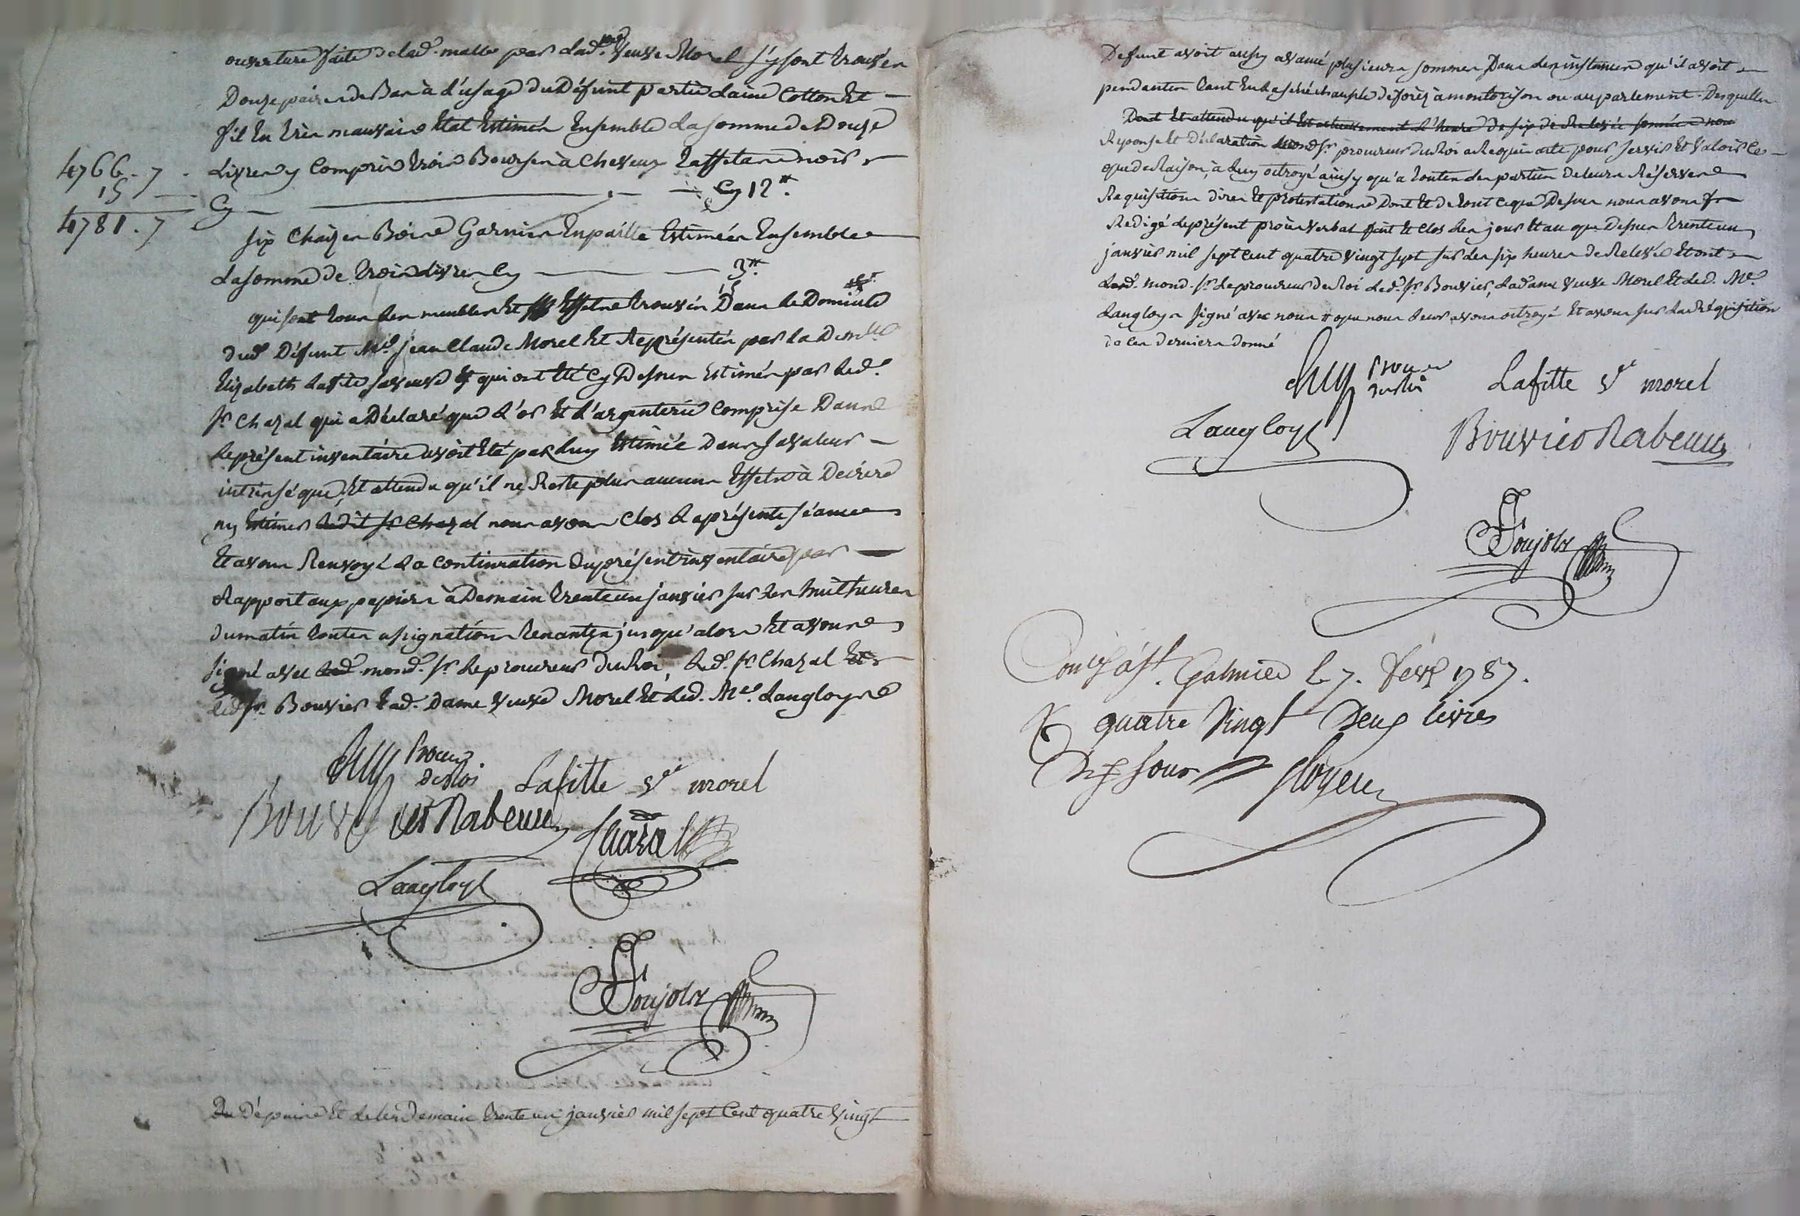 ouverture faite de lad. malle par lad. veuve Morel s'y sont trouvés
Douze paires de Bas à l'usage du Défunt partie laine Cotton Et
fil En très mauvais Etat Estimés Ensemble la somme de Douze
Livres y compris trois Bourses à cheveux taffetas noir
Cy 12#
4766. 7
15
4781. 7
six chaises Bois Garnies En paille Estimées Ensemble
la somme de trois livres Cy 3#
15
qui sont tous les meubles Et Effets trouvés Dans le Domicile
dud. Défunt Me. Jean Claude Morel Et Représentés par la De
Elizabeth Lafitte sa veuve & qui ont Eté Cy Dessus Estimés par led.
sr. Chazal qui a Déclaré que l'or Et l'argenterie Comprise Dans
le présent inventaire avoit Eté par luy Estimée Dans sa valeur
intrinséque, Et attendu qu'il ne Reste plus aucuns Effets à Décrire
ny Estimer ledit sr Chazal nous avons Clos la présente séance
Et avons Renvoyé la Continuation du présent inventaire par
Rapport aux papiers à Demain trente un janvier sur les huit heures
du matin toutes assignations tenantes jusqu'alors Et avons
signé avec led. mond. sr. le procureur Du Roi, led. sr. Chazal Et
led. sr. Bouvier lad. Dame veuve Morel Et led. Me. Langloys
procur
du Roi
Lafitte ve morel
Bouvier Rabeuu
Chazal
Langloys
Poujols
Du Dépuis Et le lendemain trente un janvier mil sept Cent quatre vingt
Défunt avoit aussy avancé plusieurs sommes Dans des instances qu'il avoit
pendantes tant En la sénéchaussée de forez à montbrison ou au parlement. Desquelles
Dont Et attendu qu'il Est actuellement l'heure De six de Relevée sonnée nous
Réponse Et Déclaration mond. sr. procureur du Roi a Requis acte pour servir Et valoir ce
que de Raison, à luy octroyé ainsy qu'à toutes les parties de leurs Réserves
Réquisitions dires Et protestations Dont Et de tout ce que Dessus nous avons
Rédigé le présent procès verbal fait Et clos les jours Et an que dessus trente un
janvier mil sept Cent quatre vingt sept sur les six heures de Relevée Et ont
led. mond. sr. le procureur du Roi led. sr. Bouvier, lad. dame veuve Morel Et led. Me.
Langloys signé avec nous que nous leur avons octroyé Et avons sur la Réquisition
de ces derniers donné
procur
du Roi
Lafitte ve morel
Langloys
Bouvier Rabeuu
Poujols
Con. à st. Galmier le 7. fevr 1787.
quatre vingt Deux livres
Dix sous